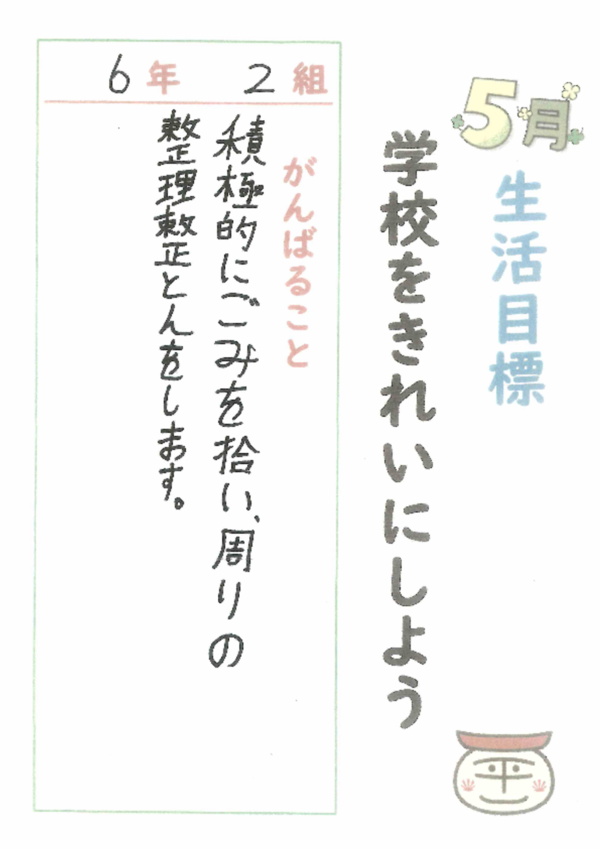 5月
生活目標
学校をきれいにしよう
6年 2組
がんばること
積極的にごみを拾い、周りの
整理整とんをします。